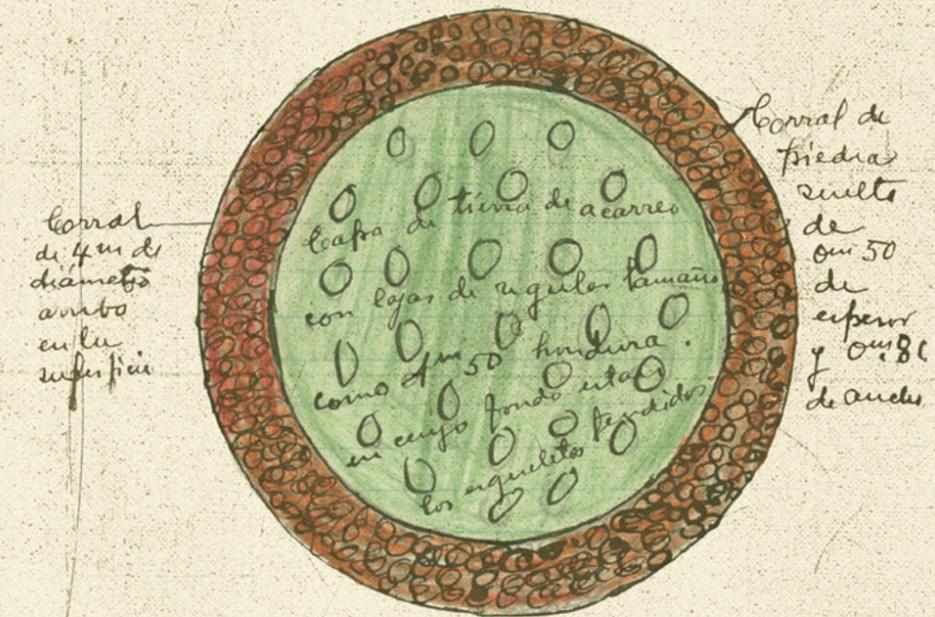 Corral
de 4 m de
diámetro
arriba
en la
superficie
Capa de tierra de acarreo
con lajas de regular tamaño
como 4m50 hondura.
en cuyo fondo estan
los esqueletos tendidos.
Corral de
piedra
suelta
de
0m50
de
espesor
y 0m.80
de ancho